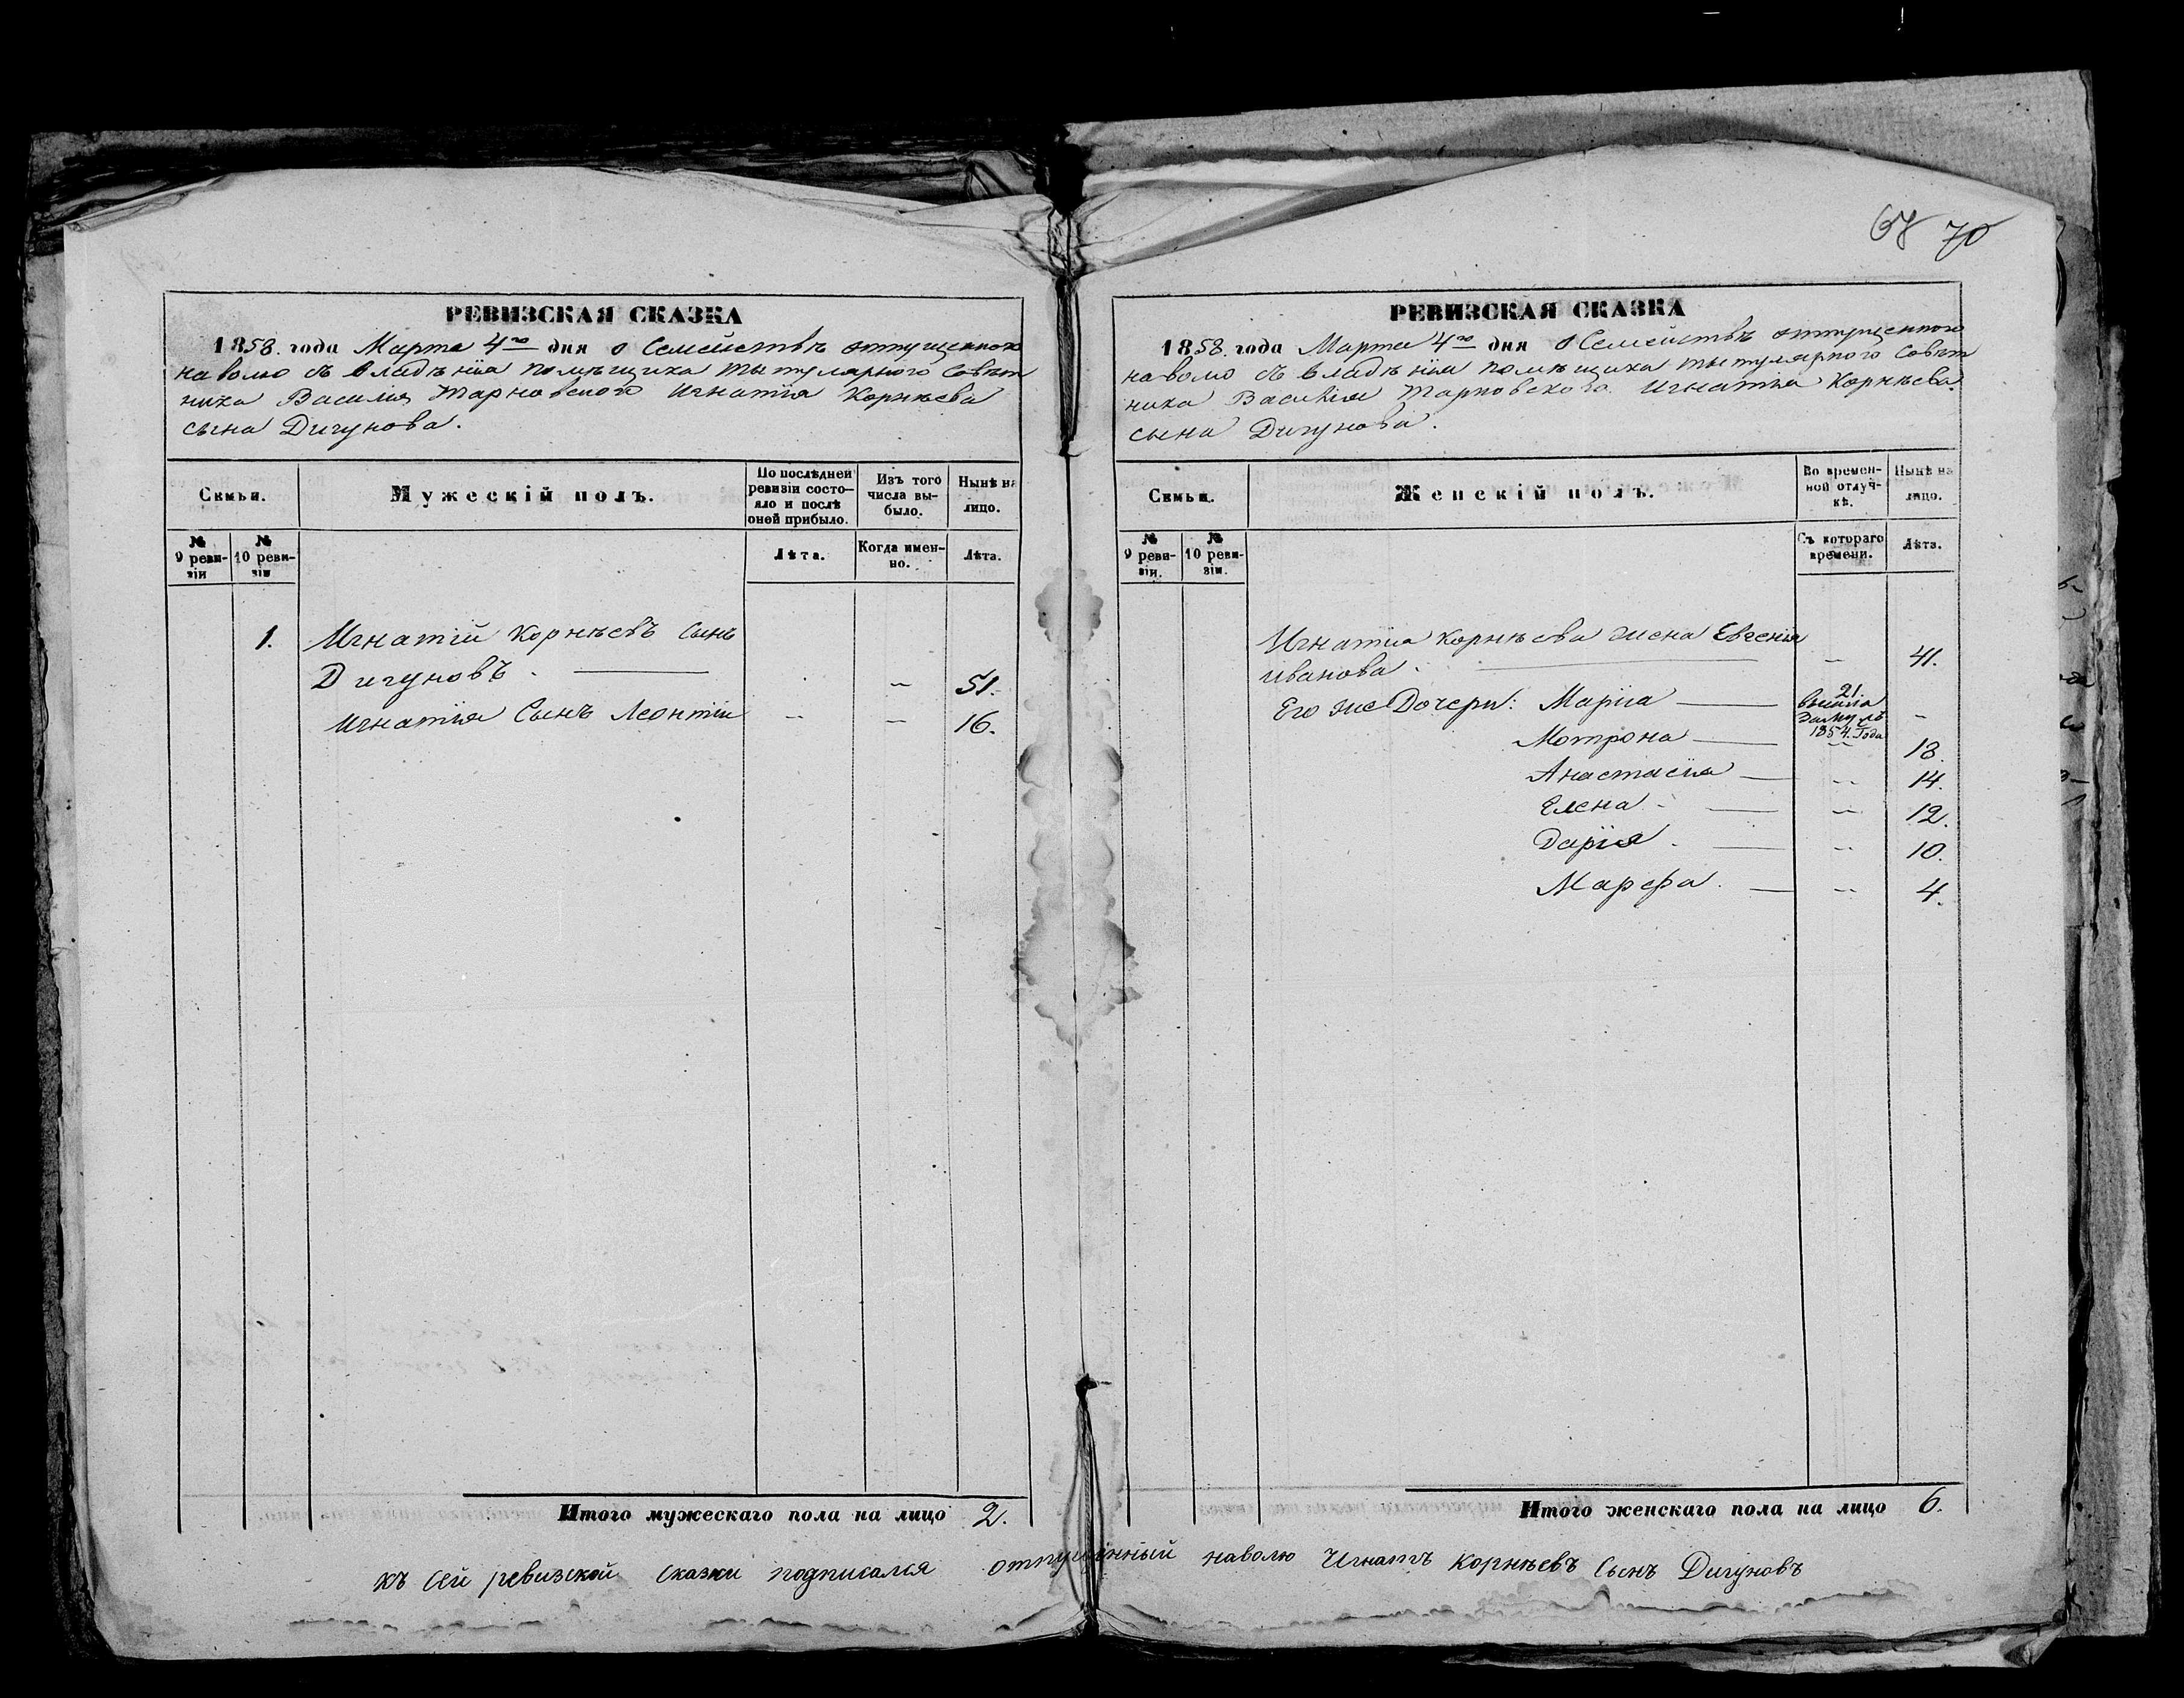 68 70
РЕВИЗСКАЯ СКАЗКА
1858. года Марта 4го дня о Семействѣ отпущенного
на волю съ владѣнія помѣщика тытулярного Совѣт
ника Василія Тарновского Игнатія Корнѣева
сына Дигунова.
Семьи.
Мужескій полъ.
По послѣдней
ревизіи состо-
яло и послѣ
оной прибыло.
Изъ того
числа вы-
было.
Нынѣ на
лицо.
№
9 реви-
зіи
№
10 реви-
зіи
Лѣта.
Когда имен-
но.
Лѣта.
1. Игнатій Корнѣевъ Сынъ
Дигуновъ. — 51.
Игнатія Сынъ Леонтій — — 16.
Итого мужескаго пола на лицо 2.
РЕВИЗСКАЯ СКАЗКА
1858. года Марта 4го дня о Семействѣ отпущенного
на волю съ владѣнія помѣщика тытулярного Совѣт
ника Василія Тарновского Игнатія Корнѣева
сына Дигунова.
Семьи.
Женскій полъ.
Во времен-
ной отлуч-
кѣ.
Нынѣ на
лицо.
№
9 реви-
зіи.
№
10 реви-
зіи.
Съ котораго
времени.
Лѣта.
Игнатія Корнѣева жена Евгенія
Иванова. — 41.
Его же Дочери: Марія — 21. вышла
замужъ
1854. Года —
Мотрона — 18.
Анастасія — 14.
Елена — 12.
Дарія — 10.
Марфа. — 4.
Итого женскаго пола на лицо 6.
къ сей ревизской сказки подписался отпущенный наволю Игнатъ Корнѣевъ Сынъ Дигуновъ